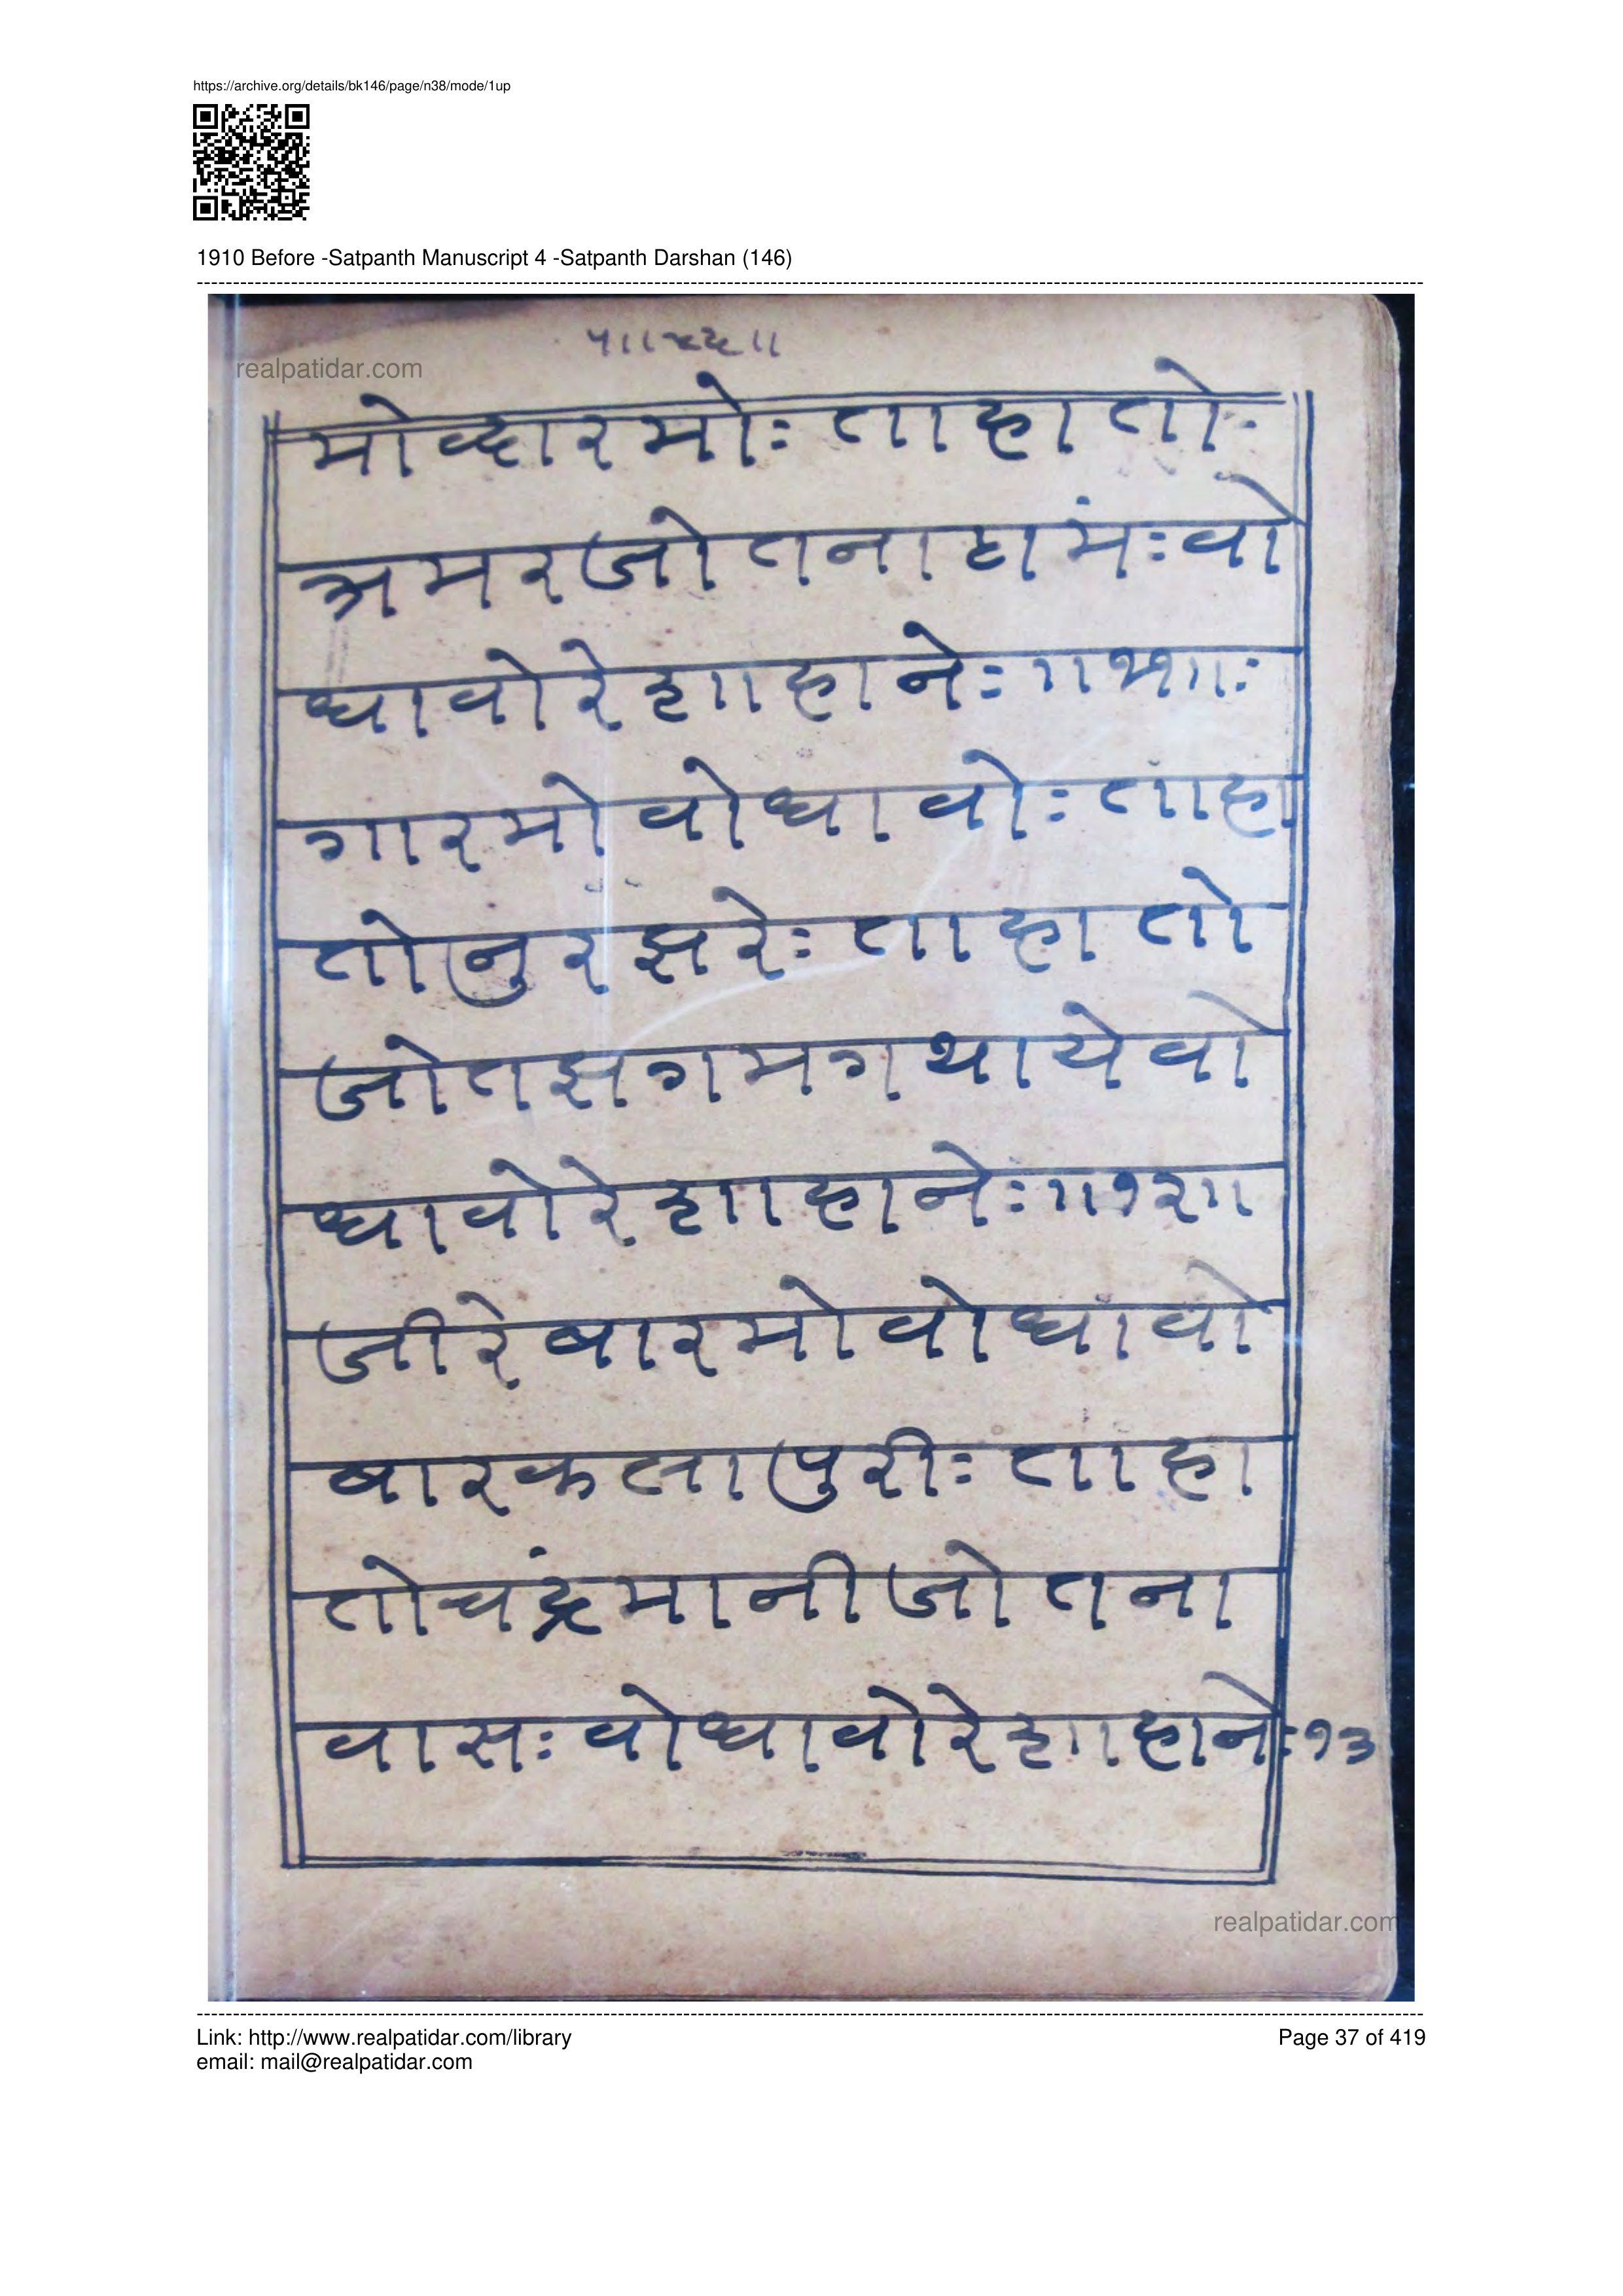 https://archive.org/details/bk146/page/n38/mode/1up
1910 Before -Satpanth Manuscript 4 -Satpanth Darshan (146)
realpatidar.com
मोव्हारमोः ताहा तोः
अमरजोतनाहामंः वो
धावोरेशाहानेः ॥११॥ः
गारमो वोधावोः ताहा
तोनुरझरेः ताहा तो
जोतझगमगथायेवो
धावोरेशाहानेः ॥१२॥
जीरेबारमोवोधावो
बारकलापुरीः ताहा
तोचंद्रमानीजोतना
वासः वोधावोरेशाहानेः १३
realpatidar.com
Link: http://www.realpatidar.com/library
Page 37 of 419
email: mail@realpatidar.com